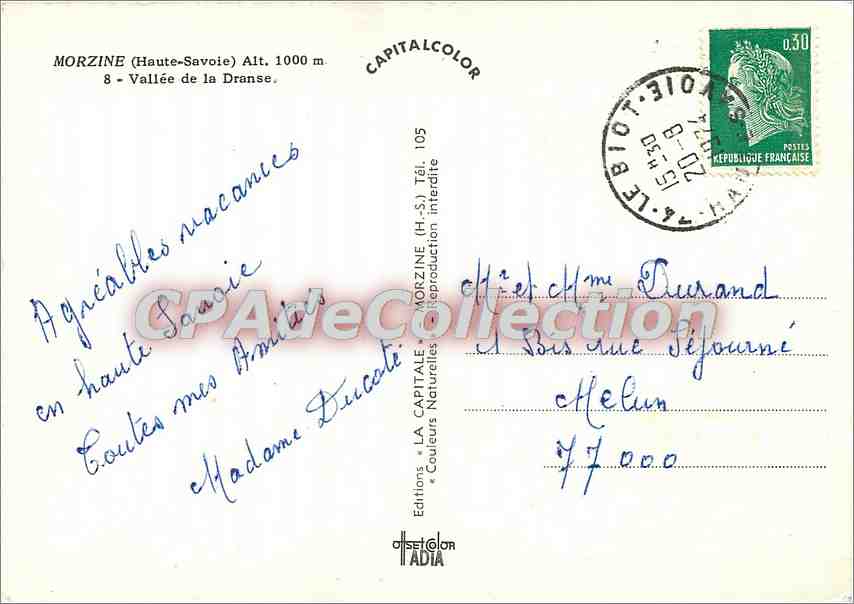 MORZINE (Haute-Savoie) Alt. 1000 m
8 - Vallée de la Dranse.
CAPITALCOLOR
0.30
POSTES
REPUBLIQUE FRANÇAISE
74 - LE BIOT - HAUTE SAVOIE
15 H 30
20 - 8
1974
Agréables vacances
en haute Savoie
Toutes mes Amitiés
Madame Ducoté
Editions « LA CAPITALE » MORZINE (H.-S.) Tél. 105
« Couleurs Naturelles » Reproduction interdite
Mr et Mme Durand
1 Bis rue Séjourné
Melun
77 000
CPAdeCollection
OFFSETCOLOR
IADIA